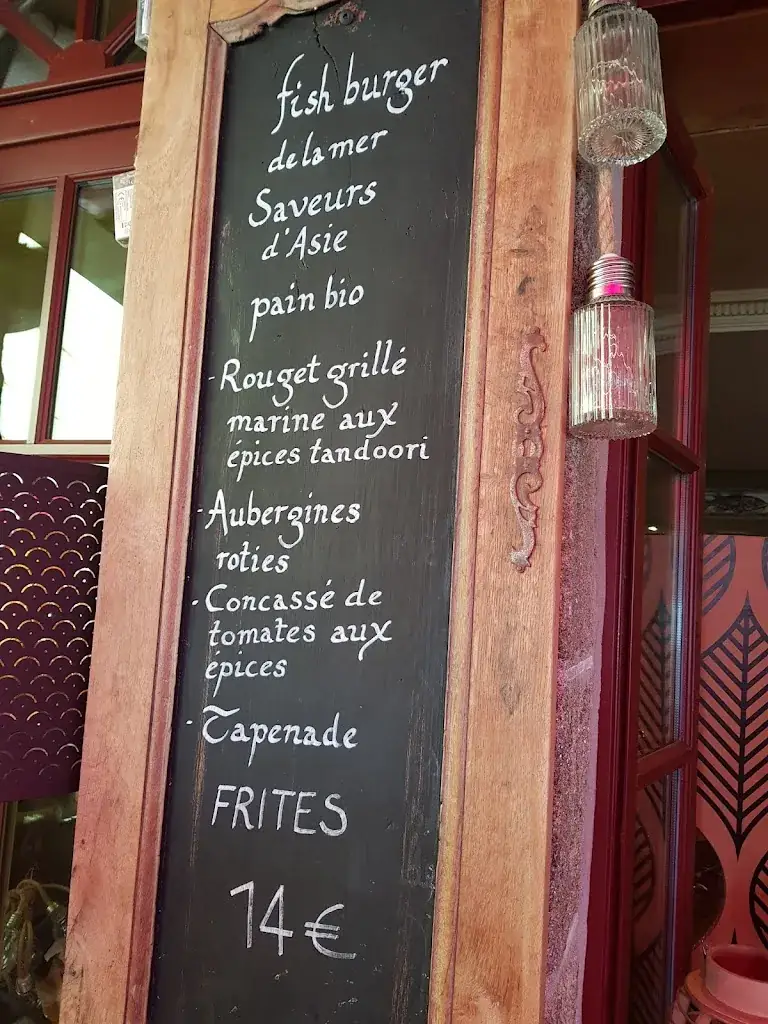 fish burger
de la mer
Saveurs
d'Asie
pain bio
- Rouget grillé
marine aux
épices tandoori
- Aubergines
roties
- Concassé de
tomates aux
épices
- Tapenade
FRITES
14 €